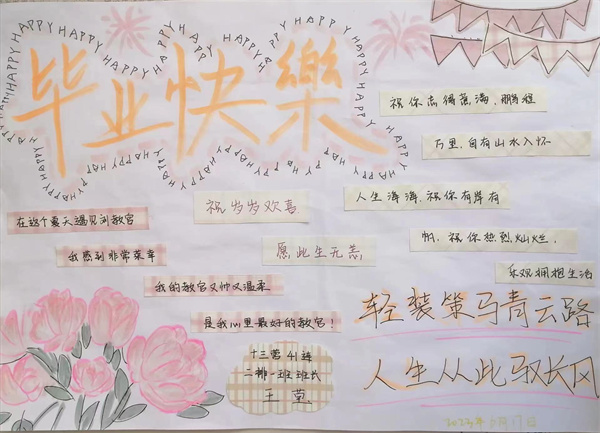 毕业快樂
HAPPY HAPPY HAPPY HAPPY HAPPY HAPPY HAPPY HAPPY HAPPY HAPPY HAPPY HAPPY
祝你志得意满,鹏程
万里,自有山水入怀
人生海海,祝你有岸有
帆,祝你热烈灿烂,
乐观拥抱生活
祝岁岁欢喜
愿此生无恙
在这个夏天遇见刘教官
我感到非常荣幸
我的教官又帅又温柔
是我心里最好的教官!
十三营41连
二排一班班长
王
轻装策马青云路
人生从此驭长风
2023年 月17日